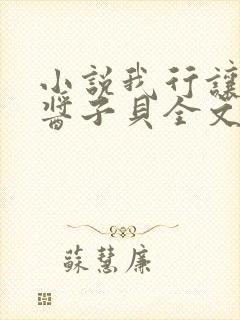 小説我行讓
醬子貝全文
蘇慧廉